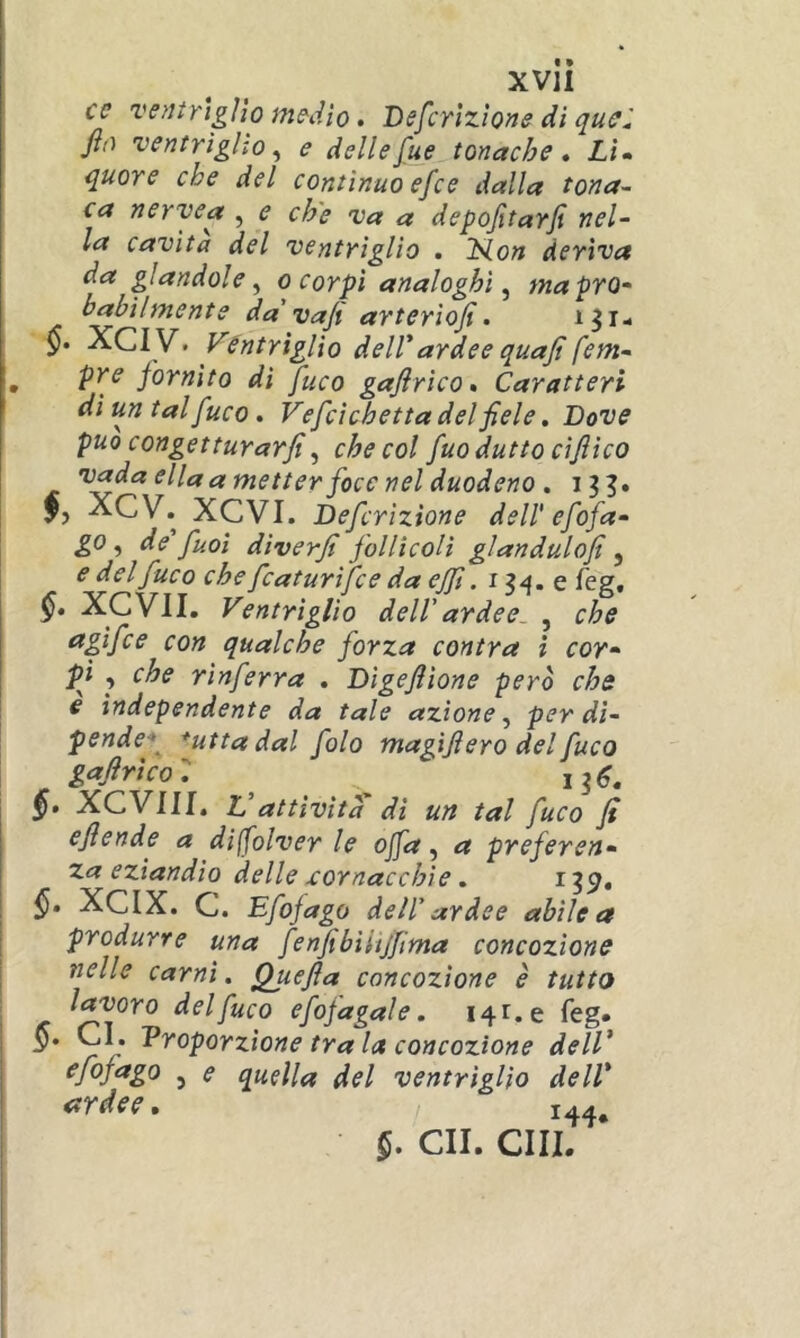 xvii
ce ventriglio medio. Deſcrizione di que-
ſto ventriglio, e delle ſue tonache. Li-
quore che del continuo eſce dalla tona-
ca nervea, e che va a depoſitarſi nel-
la cavità del ventriglio. Non deriva
da glandole, o corpi analoghi, ma pro-
babilmente da' vaſi arterioſi. 131.
§. XCIV. Ventriglio dell' ardee quaſi ſem-
pre fornito di ſuco gaſtrico. Caratteri
di un tal ſuco. Veſcichetta del fiele. Dove
può congetturarſi, che col ſuo dutto ciſtico
vada ella a metter foce nel duodeno. 133.
§, XCV. XCVI. Deſcrizione dell' eſofa-
go, de' ſuoi diverſi follicoli glanduloſi,
e del ſuco che ſcaturiſce da eſſi. 134. e ſeg.
§. XCVII. Ventriglio dell' ardee, che
agiſce con qualche forza contra i cor-
pi, che rinſerra. Digeſtione però che
è independente da tale azione, per di-
pender tutta dal ſolo magiſtero del ſuco
gaſtrico. 136.
§. XCVIII. L'attività di un tal ſuco ſi
eſtende a diſſolver le oſſa, a preferen-
za eziandio delle cornacchie. 139.
§. XCIX. C. Eſofago dell' ardee abile a
produrre una ſenſibiliſſima concozione
nelle carni. Queſta concozione è tutto
lavoro del ſuco eſofagale. 141. e ſeg.
§. CI. Proporzione tra la concozione dell'
eſofago, e quella del ventriglio dell'
ardee. 144.
§. CII. CIII.